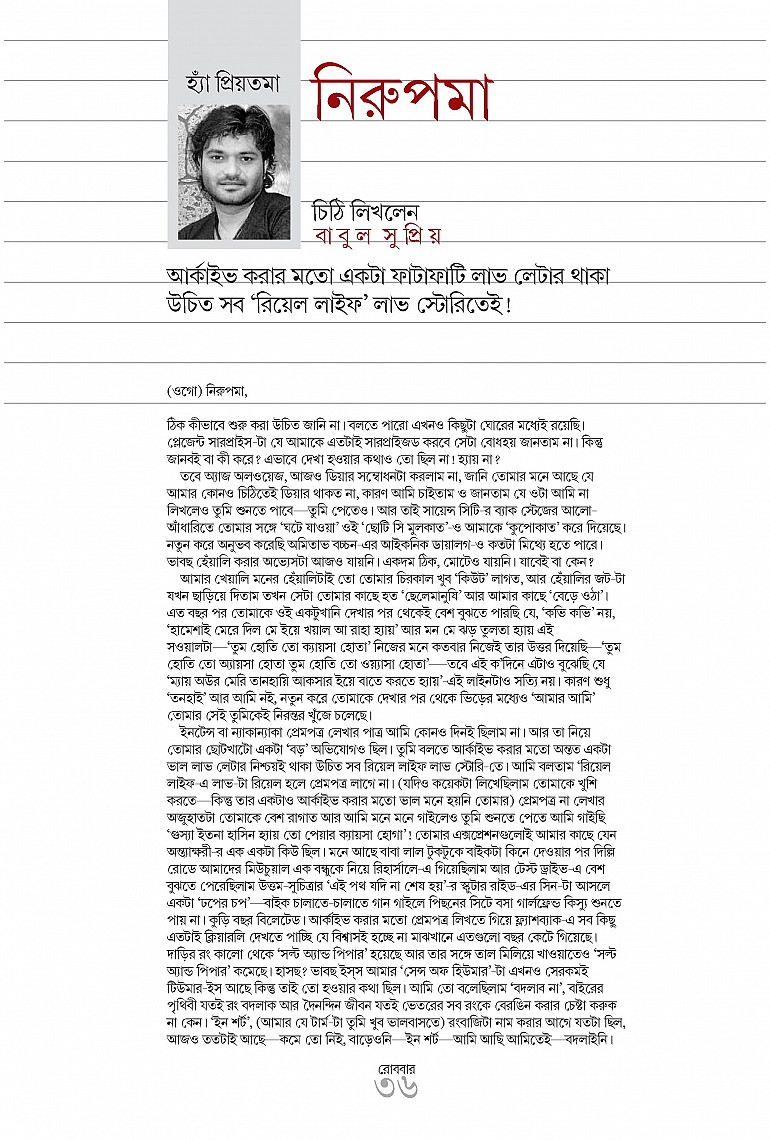 হ্যাঁ প্রিয়তমা
নিরুপমা
চিঠি লিখলেন
বাবুল সুপ্রিয়
আর্কাইভ করার মতো একটা ফাটাফাটি লাভ লেটার থাকা
উচিত সব ‘রিয়েল লাইফ’ লাভ স্টোরিতেই!
(ওগো) নিরুপমা,
ঠিক কীভাবে শুরু করা উচিত জানি না। বলতে পারো এখনও কিছুটা ঘোরের মধ্যেই রয়েছি।
প্লেজেন্ট সারপ্রাইস-টা যে আমাকে এতটাই সারপ্রাইজড করবে সেটা বোধহয় জানতাম না। কিন্তু
জানবই বা কী করে? এভাবে দেখা হওয়ার কথাও তো ছিল না! হ্যায় না?
তবে অ্যাজ অলওয়েজ, আজও ডিয়ার সম্বোধনটা করলাম না, জানি তোমার মনে আছে যে
আমার কোনও চিঠিতেই ডিয়ার থাকত না, কারণ আমি চাইতাম ও জানতাম যে ওটা আমি না
লিখলেও তুমি শুনতে পাবে—তুমি পেতেও। আর তাই সায়েন্স সিটি-র ব্যাক স্টেজের আলো-
আঁধারিতে তোমার সঙ্গে ‘ঘটে যাওয়া’ ওই ‘ছোটি সি মুলকাত’-ও আমাকে ‘কুপোকাত’ করে দিয়েছে।
নতুন করে অনুভব করেছি অমিতাভ বচ্চন-এর আইকনিক ডায়ালগ-ও কতটা মিথ্যে হতে পারে।
ভাবছ হেঁয়ালি করার অভ্যেসটা আজও যায়নি। একদম ঠিক, মোটেও যায়নি। যাবেই বা কেন?
আমার খেয়ালি মনের হেঁয়ালিটাই তো তোমার চিরকাল খুব ‘কিউট’ লাগত, আর হেঁয়ালির জট-টা
যখন ছাড়িয়ে দিতাম তখন সেটা তোমার কাছে হত ‘ছেলেমানুষি’ আর আমার কাছে ‘বেড়ে ওঠা’।
এত বছর পর তোমাকে ওই একটুখানি দেখার পর থেকেই বেশ বুঝতে পারছি যে, ‘কভি কভি’ নয়,
‘হামেশাই মেরে দিল মে ইয়ে খয়াল আ রাহা হ্যায়’ আর মন মে ঝড় তুলতা হ্যায় এই
সওয়ালটা—‘তুম হোতি তো ক্যায়সা হোতা’ নিজের মনে কতবার নিজেই তার উত্তর দিয়েছি—‘তুম
হোতি তো অ্যায়সা হোতা তুম হোতি তো ওয়্যাসা হোতা’—তবে এই ক’দিনে এটাও বুঝেছি যে
‘ম্যায় অউর মেরি তানহায়ি আকসার ইয়ে বাতে করতে হ্যায়’-এই লাইনটাও সত্যি নয়। কারণ শুধু
‘তনহাই’ আর আমি নই, নতুন করে তোমাকে দেখার পর থেকে ভিড়ের মধ্যেও ‘আমার আমি’
তোমার সেই তুমিকেই নিরন্তর খুঁজে চলেছে।
ইনটেন্স বা ন্যাকান্যাকা প্রেমপত্র লেখার পাত্র আমি কোনও দিনই ছিলাম না। আর তা নিয়ে
তোমার ছোটখাটো একটা ‘বড়’ অভিযোগও ছিল। তুমি বলতে আর্কাইভ করার মতো অন্তত একটা
ভাল লাভ লেটার নিশ্চয়ই থাকা উচিত সব রিয়েল লাইফ লাভ স্টোরি-তে। আমি বলতাম ‘রিয়েল
লাইফ-এ লাভ-টা রিয়েল হলে প্রেমপত্র লাগে না। (যদিও কয়েকটা লিখেছিলাম তোমাকে খুশি
করতে—কিন্তু তার একটাও আর্কাইভ করার মতো ভাল মনে হয়নি তোমার) প্রেমপত্র না লেখার
অজুহাতটা তোমাকে বেশ রাগাত আর আমি মনে মনে গাইলেও তুমি শুনতে পেতে আমি গাইছি
‘গুস্যা ইতনা হাসিন হ্যায় তো পেয়ার ক্যায়সা হোগা’! তোমার এক্সপ্রেশনগুলোই আমার কাছে যেন
অন্ত্যাক্ষরী-র এক একটা কিউ ছিল। মনে আছে বাবা লাল টুকটুকে বাইকটা কিনে দেওয়ার পর দিল্লি
রোডে আমাদের মিউচুয়াল এক বন্ধুকে নিয়ে রিহার্সালে-এ গিয়েছিলাম আর টেস্ট ড্রাইভ-এ বেশ
বুঝতে পেরেছিলাম উত্তম-সুচিত্রার ‘এই পথ যদি না শেষ হয়’-র স্কুটার রাইড-এর সিন-টা আসলে
একটা ‘ঢপের চপ’—বাইক চালাতে-চালাতে গান গাইলে পিছনের সিটে বসা গার্লফ্রেন্ড কিস্যু শুনতে
পায় না। কুড়ি বছর বিলেটেড। আর্কাইভ করার মতো প্রেমপত্র লিখতে গিয়ে ফ্ল্যাশব্যাক-এ সব কিছু
এতটাই ক্লিয়ারলি দেখতে পাচ্ছি যে বিশ্বাসই হচ্ছে না মাঝখানে এতগুলো বছর কেটে গিয়েছে।
দাড়ির রং কালো থেকে ‘সল্ট অ্যান্ড পিপার’ হয়েছে আর তার সঙ্গে তাল মিলিয়ে খাওয়াতেও ‘সল্ট
অ্যান্ড পিপার’ কমেছে। হাসছ? ভাবছ ইস্‌স আমার ‘সেন্স অফ হিউমার’-টা এখনও সেরকমই
টিউমার-ইস আছে কিন্তু তাই তো হওয়ার কথা ছিল। আমি তো বলেছিলাম ‘বদলাব না’, বাইরের
পৃথিবী যতই রং বদলাক আর দৈনন্দিন জীবন যতই ভেতরের সব রংকে বেরঙিন করার চেষ্টা করুক
না কেন। ‘ইন শর্ট’, (আমার যে টার্ম-টা তুমি খুব ভালবাসতে) রংবাজিটা নাম করার আগে যতটা ছিল,
আজও ততটাই আছে—কমে তো নিই, বাড়েওনি—ইন শর্ট—আমি আছি আমিতেই—বদলাইনি।
রোববার
৩৬